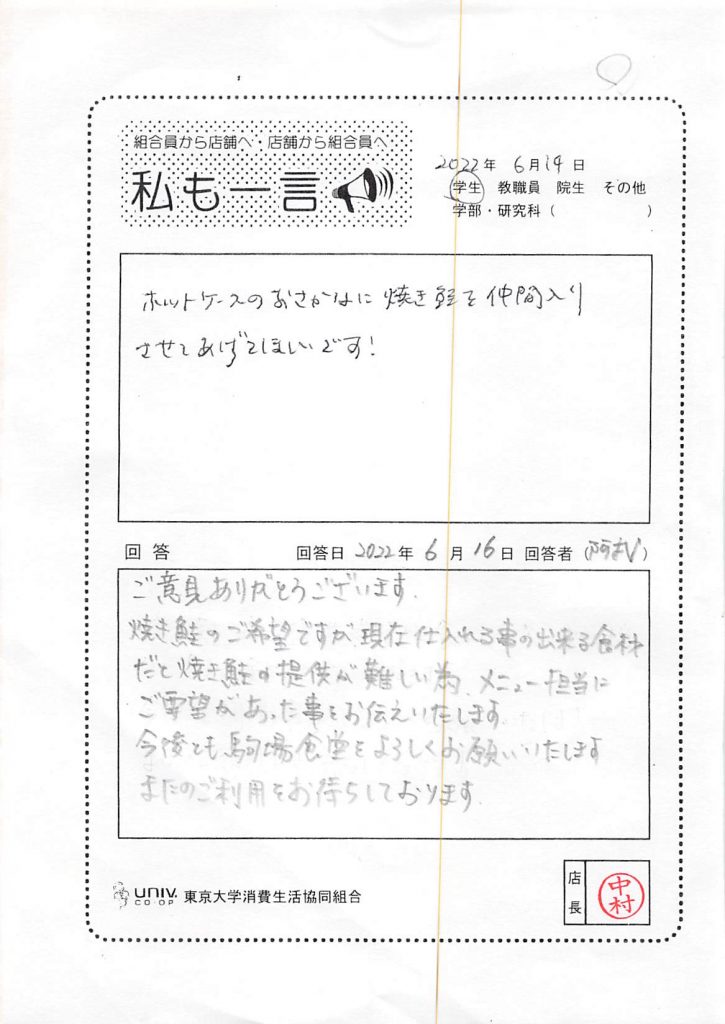 組合員から店舗へ・店舗から組合員へ
私も一言
2022年 6月14日
学生 教職員 院生 その他
学部・研究科( )
ホットケースのおさかなに焼き鮭を仲間入り
させてあげてほしいです!
回答 回答日 2022年 6月 16日 回答者( )
ご意見ありがとうございます.
焼き鮭のご希望ですが現在仕入れる事の出来る食材
だと焼き鮭の提供が難しい為、メニュー担当に
ご要望があった事をお伝えいたします
今後とも駒場食堂をよろしくお願いいたします
またのご利用をお待ちしております.
UNIV. CO-OP 東京大学消費生活協同組合
店長
中村